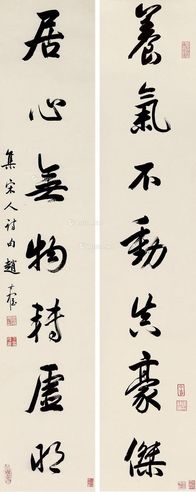 養氣不動真豪傑
居心無物轉虛明
集宋人詩句 趙